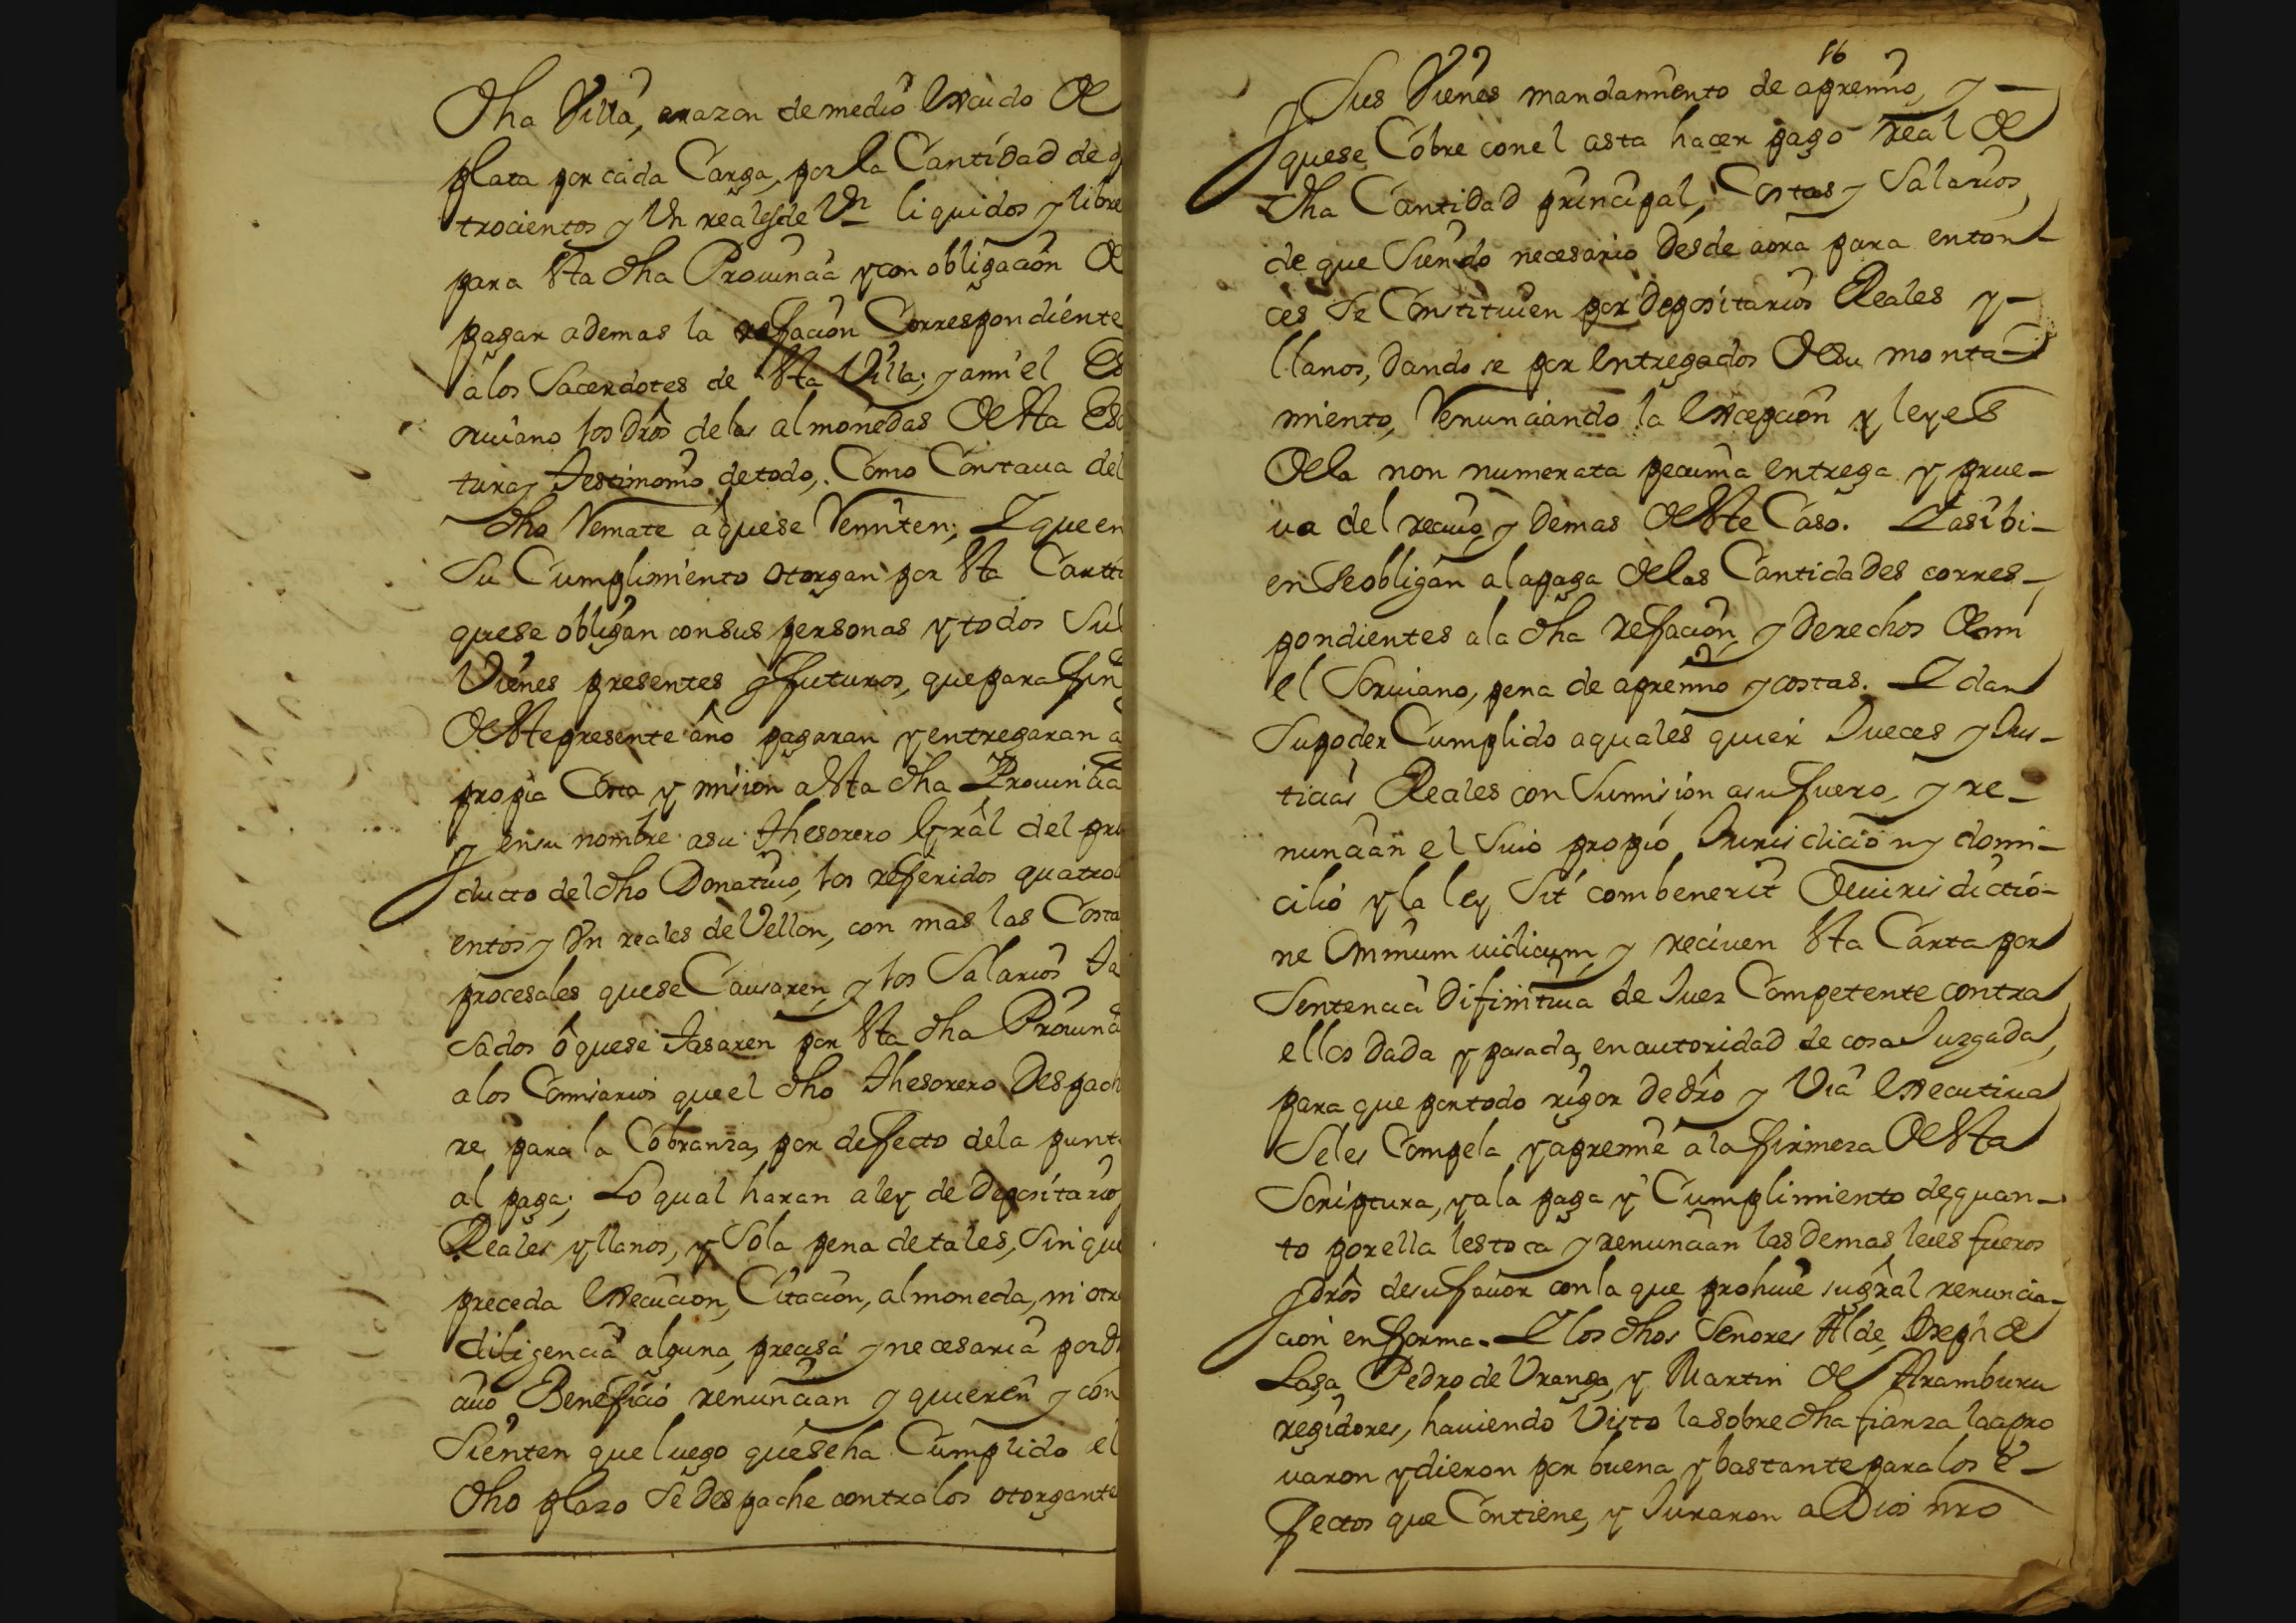 dha Villa, arazon de medio escudo de
plata por cada Carga, por la Cantidad de q
trocientos y Un reales de Vn liquidos y libre
para esta dha Prouincia y con obligacion de
pagar ademas la refacion Correspondiente
a los Sacerdotes de esta Villa; y a mi el Es
criuano los dros de las almonedas de esta Esc
tura y Testimonio de todo, Como Constaua del
dho Remate a que se Remiten; Y que en
Su Cumplimiento otorgan por esta Cartta
que se obligan con sus personas y todos Sus
Vienes presentes y futuros, que para fin
de este presente año pagaran y entregaran a
propia Costa y mision a esta dha Prouincia
y en su nombre a su Thesorero Gral del pro
ducto del dho Donatiuo, los referidos quatroci
entos y Un reales de Vellon, con mas las Costa
procesales que se Causaren, y los Salarios ta
sados ô que se tasaren por esta dha Prouinci
a los Comisarios que el dho Thesorero Despach
re para la Cobranza, por defecto de la puntu
al paga; Lo qual haran a ley de Depositarios
Reales y llanos, y So la pena de tales, Sin que
preceda execucion, Citacion, almoneda, ni otra
diligencia alguna, precisa y necesaria por d
cuio Beneficio renuncian y quieren y con
Sienten que luego que se ha Cumplido el
dho plazo Se Despache contra los otorgante
16
y Sus Vienes mandamiento de apremio, y
que se Cobre con el asta hacer pago real de
dha Cantidad principal, Costas y Salarios,
de que Siendo necesario Desde aora para enton-
ces Se Constituien por Depositarios Reales y
llanos, Dandose por entregados de su monta-
miento, Renunciando la excepcion y leyes
de la non numerata pecunia entrega y prue-
ua del reciuo y Demas de este Caso. Y asi bi-
en Se obligan a la paga de las Cantidades corres-
pondientes a la dha refacion, y Derechos de mi
el Scriuano, pena de apremio y costas. Y dan
Su poder Cumplido a quales quier Jueces y Jus-
ticias Reales con Sumision a su fuero, y re-
nuncian el Suio propio Jurisdicion y domi-
cilio y la ley Sit combenerit de iurisdictio-
ne Omnium iudicum, y reciuen esta Carta por
Sentencia Difinitiua de Juez Competente contra
ellos Dada y pasada, en autoridad de cosa Juzgada,
para que por todo rigor de dro y Via executiua
Se les Compela y apremie a la firmeza de esta
Scriptura, y a la paga y Cumplimiento de quan-
to por ella les toca y renuncian las Demas leies fueros
y dros de su fauor con la que prohiue su gral renuncia-
cion en forma. Y los dhos Señores Alde, Joseph de
Lasa, Pedro de Uranga, y Martin de Aramburu
regidores, hauiendo Visto la sobre dha fianza la apro
uaron y dieron por buena y bastante para los e-
fectos que Contiene, y Juraron a Dios nro